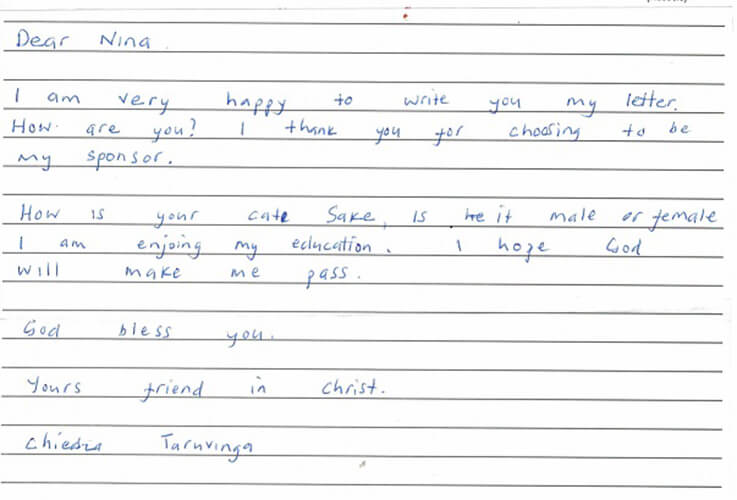 Dear Nina
I am very happy to write you my letter.
How are you? I thank you for choosing to be
my sponsor.
How is your cate Sake, is it male or female
I am enjoing my education. I hope God
will make me pass.
God bless you.
Yours friend in Christ.
Taruvinga